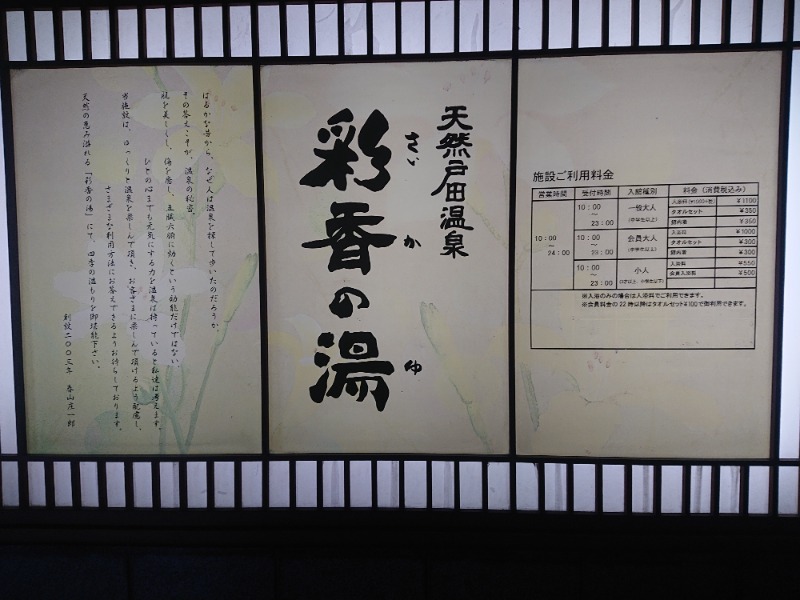 天然戸田温泉
さい か ゆ
彩香の湯
施設ご利用料金
営業時間 受付時間 入館種別 料金（消費税込み）
10：00～24：00
10：00～23：00 一般大人（中学生以上）
¥1100
タオルセット ¥350
館内着 ¥350
10：00～23：00 会員大人（中学生以上）
入浴料 ¥1000
タオルセット ¥300
館内着 ¥300
10：00～23：00 小人
入浴料 ¥550
会員入浴料 ¥500
※入浴のみの場合は入浴料でご利用できます。
※会員料金の22時以降はタオルセット¥100で御利用できます。
はるかな昔から、なぜ人は温泉を探して歩いたのだろうか
その答えこそが、温泉の秘密。
肌を美しくし、傷を癒し、五臓六腑に効くという効能だけではない
ひとの心までも元気にする力を温泉は持っていると私達は考えます。
当施設は、ゆっくりと温泉を楽しんで頂き、お客さまに楽しんで頂けるよう配慮し、
さまざまな利用方法にお答えできるようお待ちしております。
天然の恵み溢れる「彩香の湯」にて、四季の温もりを御堪能下さい。
創設二〇〇三年 春山庄一郎